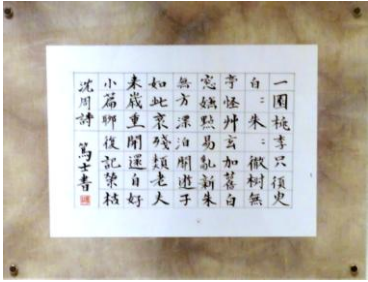 一園桃李只須臾
白〻朱〻徹樹無
亭怪艸玄加舊白
窓嫌點易亂新朱
無方漂泊關遊子
如此衰殘類老夫
來歲重開還自好
小篇聊復記榮枯
沈周詩 篤士書